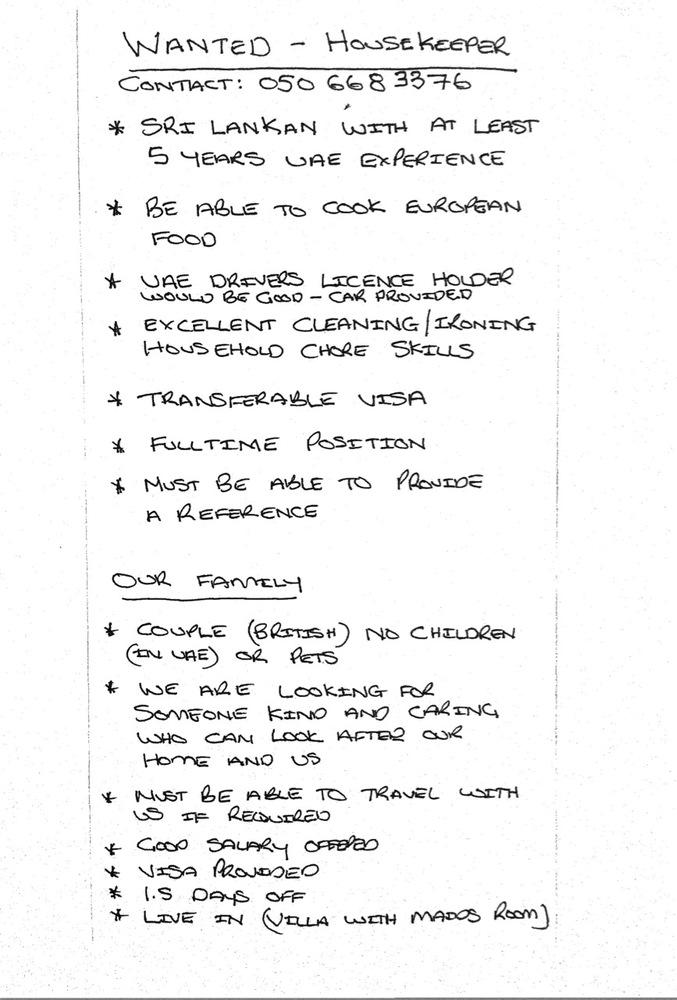 WANTED - HOUSEKEEPER
CONTACT: 050 668 3376
* SRI LANKAN WITH AT LEAST
5 YEARS UAE EXPERIENCE
* BE ABLE TO COOK EUROPEAN
FOOD
* UAE DRIVERS LICENCE HOLDER
WOULD BE GOOD - CAR PROVIDED
* EXCELLENT CLEANING/IRONING
HOUSEHOLD CHORE SKILLS
* TRANSFERABLE VISA
* FULLTIME POSITION
* MUST BE ABLE TO PROVIDE
A REFERENCE
OUR FAMILY
* COUPLE (BRITISH) NO CHILDREN
(IN UAE) OR PETS
* WE ARE LOOKING FOR
SOMEONE KIND AND CARING
WHO CAN LOOK AFTER OUR
HOME AND US
* MUST BE ABLE TO TRAVEL WITH
US IF REQUIRED
* GOOD SALARY OFFERED
* VISA PROVIDED
* 1.5 DAYS OFF
* LIVE IN (VILLA WITH MAIDS ROOM)